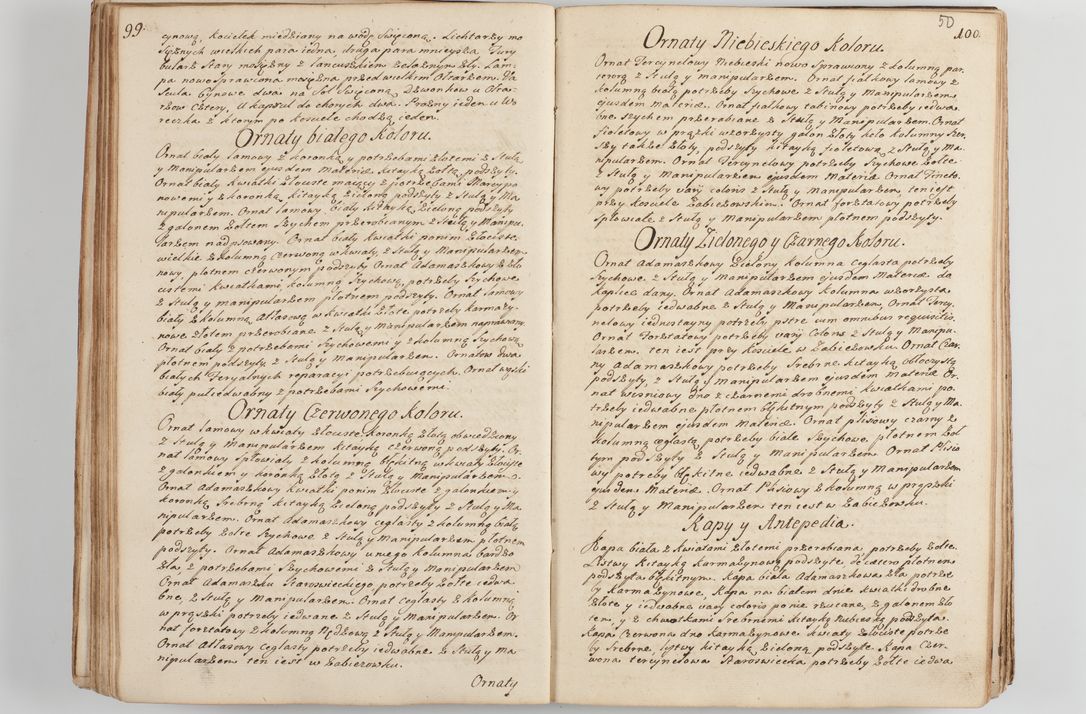 99.
cynową, kociełek miedziany na wodę Swięconą. Lichtarzy mo
Siężnych wielkich para iedna, druga para mnieysza Tury
bularz Stary mosiężny z łancuszkiem żelaznym zły. Lam-
pa nowo Sprawiona mosiężna przed wielkim Ołtarzem. Va
Scula Cynowe dwa na Sol Swięconą Dzwonkow u Ołta-
rzow cztery, u kapsul do chorych dwa. Prożny ieden u Wo
reczka z ktorym po kosciele chodzą ieden.
Ornaty białego koloru.
Ornat biały lamowy z koronką y potrzebami złotemi z Stułą
y Manipularzem ejusdem Materiæ kitayką żołtą podszyty.
Ornat biały kwiatki złociste maiący z potrzebami Marcypa
nowemi y koronką kitayką zieloną podszyty z Stułą y Ma
nipularzem. Ornat lamowy, biały kitayką zieloną podszyty
z galonem żołtem Szychem przerobianym z Stułą y Manipu
larzem nadpsowany. Ornat biały kwiatki ponim złociste
wielkie z kolumną czerwoną w kwiaty z Stułą y Manipularzem
nowy, płotnem czerwonym podszyty Ornat Adamaszkowy z zło
cistemi kwiatkami kolumną Szychową, potrzeby Szychowe
z Stułą y manipularzem płotnem podszyty. Ornat lamowy
biały z kolumną Atłasową w kwiatki złote potrzeby karmazy-
nowe złotem przerobiane z Stułą y Manipularzem naprawiony.
Ornat biały z potrzebami Szychowemi y z kolumną Szychową
płotnem podszyty z Stułą y Manipularzem. Ornatow dwa
białych Feryalnych reparacyi potrzebuiących. Ornat wązki
biały pułiedwabny z potrzebami Szychowemi.
Ornaty Czerwonego koloru.
Ornat lamowy w kwiaty złociste koronką złotą obwiedziony
z Stułą y Manipularzem kitayką czerwoną podszyty. Or-
nat lamowy spłowiały z kolumną błękitną w kwiaty złociste
z galonkiem y koronką złotą z Stułą y Manipularzem.
Ornat Adamaszkowy kwiatki ponim złociste z galonkiem y
koronką Srebrną kitayką zieloną podszyty z Stułą y Ma
nipularzem. Ornat adamaszkowy ceglasty z kolumną białą
potrzeby żołte Szychowe z Stułą y Manipularzem płotnem
podszyty. Ornat Adamaszkowy u niego kolumna bardzo
zła z potrzebami Szychowemi z Stułą y Manipularzem
Ornat Adamaszku Staroswieckiego potrzeby żołte iedwa
bne, z Stułą y Manipularzem. Ornat ceglasty z kolumną
w prążki potrzeby iedwane z Stułą y Manipularzem. Or
nat forsztatowy z kolumną Rydzową z Stułą y Manipularzem.
Ornat Atłasowy ceglasty potrzeby iedwabne z Stułą y Ma
nipularzem ten iest w Zabiezowku.
Ornaty
50
100.
Ornaty Niebieskiego koloru.
Ornat Tercynelowy Niebieski nowo Sprawiony z kolumną par,
terową z Stułą y manipularzem. Ornat fiałkowy lamowy z
kolumną białą potrzeby Szychowe z Stułą y Manipularzem
ejusdem Materiæ. Ornat fiałkowy tabinowy potrzeby iedwa
bne szychem przerabiane z Stułą y Manipularzem. Ornat
fioletowy w prążki wzorzysty galon złoty koło kolumny Szer
szy także złoty, podszyty kitayką fioletową z Stułą y Ma
nipularzem. Ornat Tercynelowy potrzeby Szychowe żołte
z Stułą y Manipularzem ejusdem Materiæ Ornat Tincto,
wy potrzeby varÿ coloris z Stułą y Manipularzem ten iest
przy kosciele Zabiezowskim. Ornat forsztatowy potrzeby
Spłowiałe z Stułą y Manipularzem płotnem podszyty.
Ornaty Zielonego y Czarnego koloru.
Ornat Adamaszkowy zielony kolumna ceglasta potrzeby
Szychowe, z Stułą y Manipularzem ejusdem Materiæ do
kaplice dany. Ornat Adamaszkowy kolumna wzorzysta
potrzeby iedwabne z Stułą y Manipularzem, Ornat Tercy-
nelowy iednostayny potrzeby pstre cum omnibus requisitis.
Ornat Forsztatowy potrzeby varÿ Coloris z Stułą y Manipu-
larzem. ten iest przy kosciele w Zabiezowku. Ornat Czar,
ny Adamaszkowy potrzeby Srebrne kitayką obłoczystą
podszyty, z Stułą y Manipularzem ejusdem Materiæ Or-
nat wisniowy dno z czarnemi drobnemi kwiatkami po-
trzeby iedwabne płotnem błękitnym podszyty z Stułą y Ma-
nipularzem ejusdem Materiæ. Ornat plisowy czarny z
kolumną ceglastą, potrzeby białe Szychowe, płotnem żoł
tym podszyty z Stułą y Manipularzem. Ornat Plisio
wy potrzeby błękitne iedwabne z Stułą y Manipularzem
ejusdem Materiæ. Ornat Plisiowy z kolumną w prążki
z Stułą y Manipularzem ten iest w Zabiezowku.
Kapy y Antepedia.
Kapa biała z kwiatami złotemi przerobiana potrzeby żołte.
Listwy kitayką karmazynową podszyte do cztero płotnem
podszyta błękitnym. Kapa biała Adamaszkowa zła potrze
by karmazynowe, kapa na białem dnie kwiatki drobne
złote y iedwabne varÿ coloris ponie rzucane, z galonem zło
tem, y z chwastkami Srebrnemi kitayką niebieską podszyta
Kapa Czerwona dno karmazynowe kwiaty złociste potrze
by Srebrne, listwy kitayką zieloną podszyte Kapa Czer-
wona tercynelowa Staroswiecka potrzeby żołte iedwa